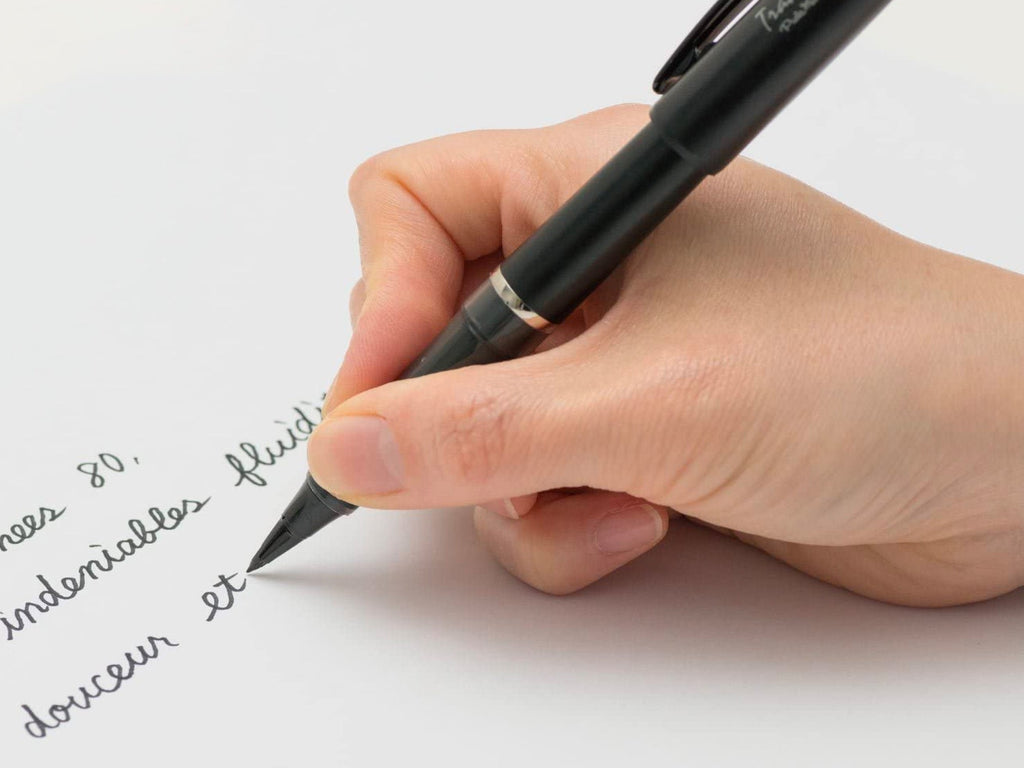 nees 80,
indeniables fluidi
douceur et
Tra